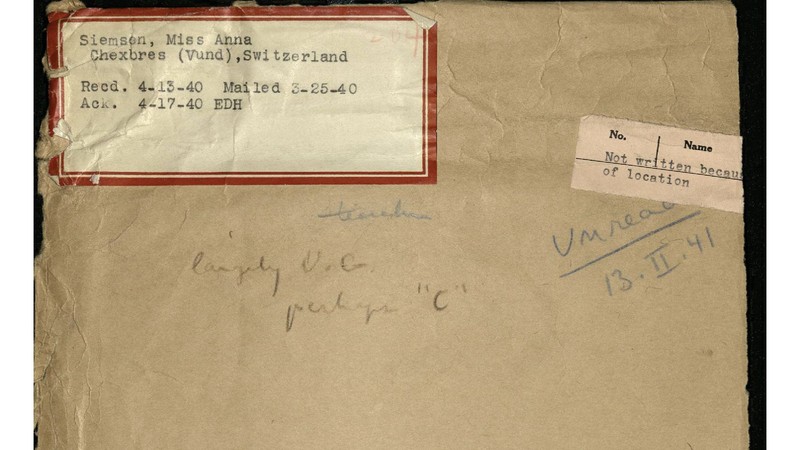 Siemsen, Miss Anna
Chexbres (Vund),Switzerland
Recd. 4-13-40 Mailed 3-25-40
Ack. 4-17-40 EDH
No. Name
Not written becau
of location
Unread
13.II.41
largely V.G.
perhaps "C"